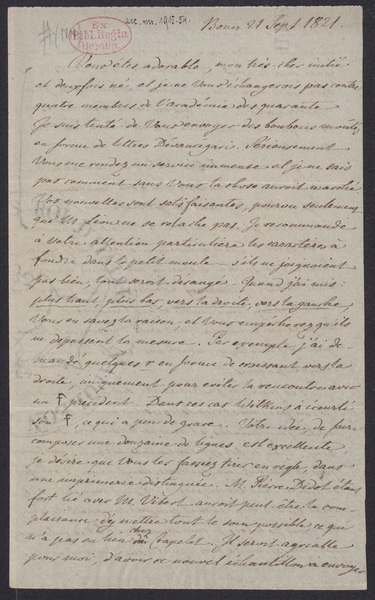 acc. ms. 1915.51.
Ex Bibl. Regia Berolin.
Bonn 21 Sept 1821.
Vous êtes adorable, mon très cher initié
et deux fois né, et je ne Vous échangerois pas contre
quatre membres de l'académie des quarante.
Je suis tenté de Vous envoyer des bonbons moulés
en forme de lettres Dévanagaris. Sérieusement
Vous me rendez un service immense et je ne sais
pas comment sans Vous la chose auroit marché.
Vos nouvelles sont satisfaisantes, pourvu seulement
que M. Lion ne se relache pas. Je recommande
à Votre attention particulière les caractères à
fondre dans le petit moule – s'ils ne joignoient
pas bien, tout seroit dérangé. Quand j'ai mis:
plus haut, plus bas, vers la droite, vers la gauche
Vous en savez la raison, et Vous empêcherez qu'ils
ne dépassent la mesure. Par exemple j'ai de-
mandé quelques r en forme de croissant vers la
droite, uniquement pour eviter la rencontre avec
un f précédent. Dans ces cas Wilkins a écourté
son f, ce qui a peu de grace. Votre idée, de faire
composer une douzaine de lignes est excellente,
je désire que Vous les fassiez tirer en règle, dans
une imprimerie distinguée. M. Pierre Didot étant
fort lié avec M. Vibert auroit peut être la com-
plaisance d'y mettre tout le soin possible ce qui
n'a pas eu lieu chez Crapelet. Il seroit agréable
pour moi, d'avoir ce nouvel échantillon à envoyer